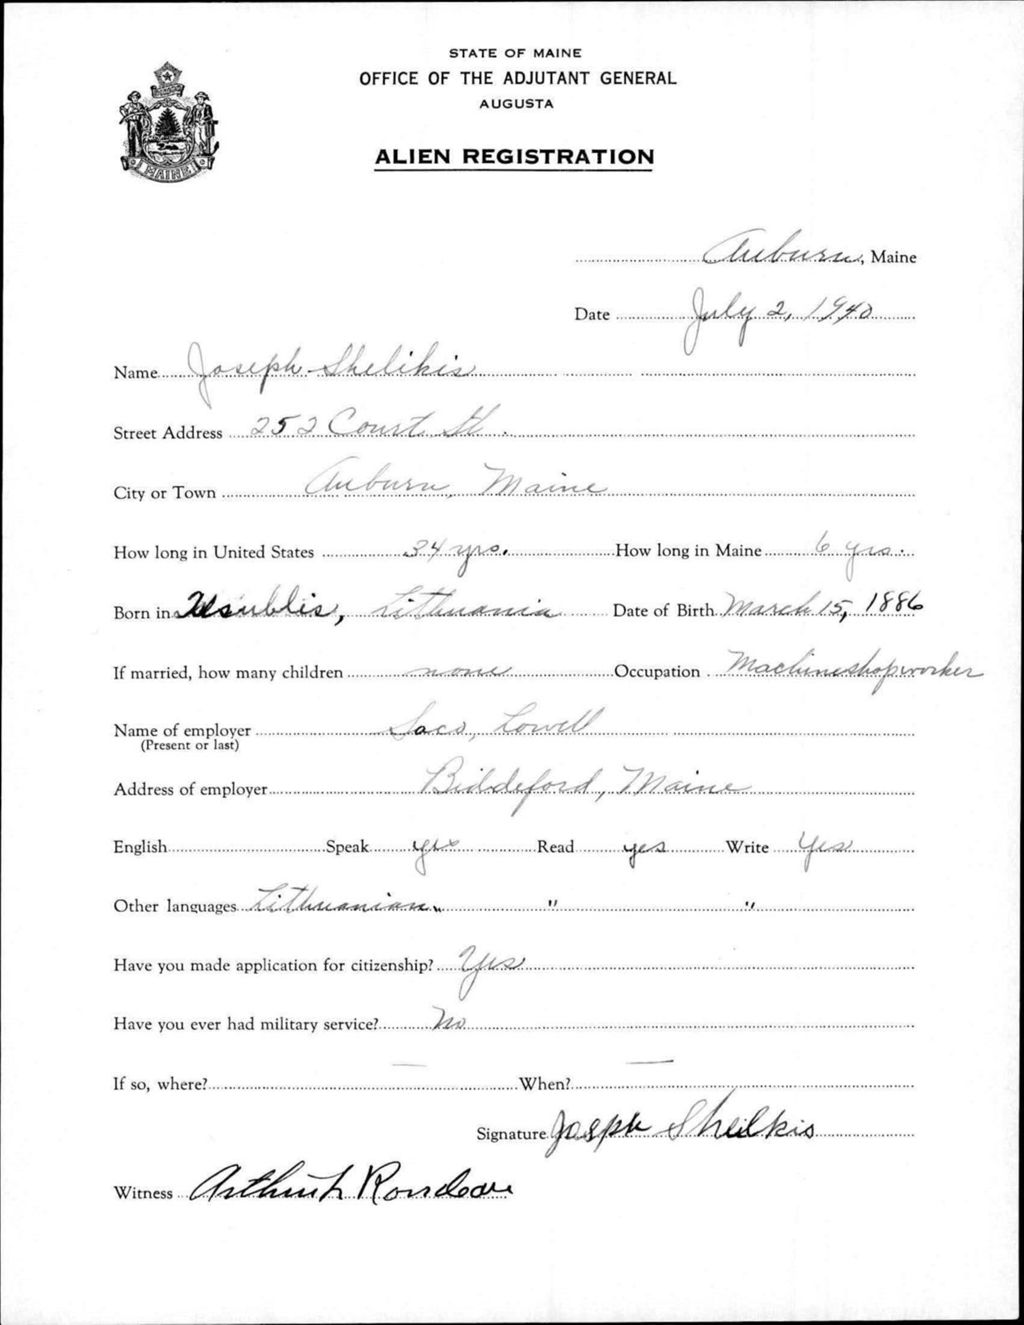 STATE OF MAINE
OFFICE OF THE ADJUTANT GENERAL
AUGUSTA
ALIEN REGISTRATION
MAINE
Auburn, Maine
Date July 2, 1940
Name Joseph Shelikis
Street Address 252 Court St.
City or Town Auburn, Maine
How long in United States 34 yrs. How long in Maine 6 yrs.
Born in Lithuania Date of Birth March 15, 1886
If married, how many children none Occupation Machineshopworker
Name of employer Saco, Lowell
(Present or last)
Address of employer Biddeford, Maine
English Speak yes Read yes Write Yes
Other languages Lithuanian " " "
Have you made application for citizenship? Yes
Have you ever had military service? No
If so, where? — When? —
Signature Joseph Sheilkis
Witness Rondeau